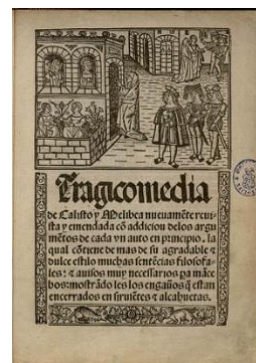 Tragicomedia
de Calisto y Melibea nueuamēte reui
sta y emendada cō addicion delos argu
mētos de cada vn auto en principio. la
qual cōtiene de mas de su agradable ⁊
dulce estilo muchas sentēcias filosofa
les: ⁊ auisos muy necessarios pa māce
bos: mostrādo les los engaños q̄ estan
encerrados en siruiētes ⁊ alcahuetas.